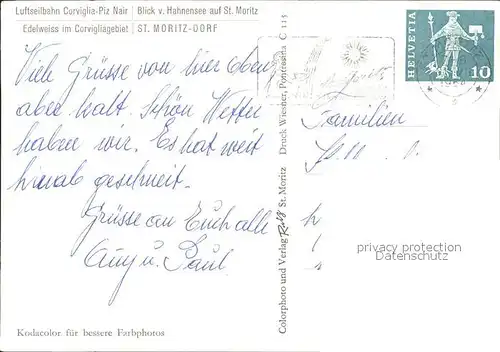 Luftseilbahn Corviglia-Piz Nair
Edelweiss im Corvigliagebiet
Blick v. Hahnensee auf St. Moritz
ST. MORITZ-DORF
Viele Grüsse von hier Oben
aber kalt. Schön Wetter
haben wir. Es hat weit
hinab geschneit.
Grüsse an Euch alle
u. Paul
Kodacolor für bessere Farbphotos
Colorphoto und Verlag Rutz St. Moritz Druck Wiesner, Pontresina C 115
St. Moritz
HELVETIA
10
Familien
privacy protection
Datenschutz